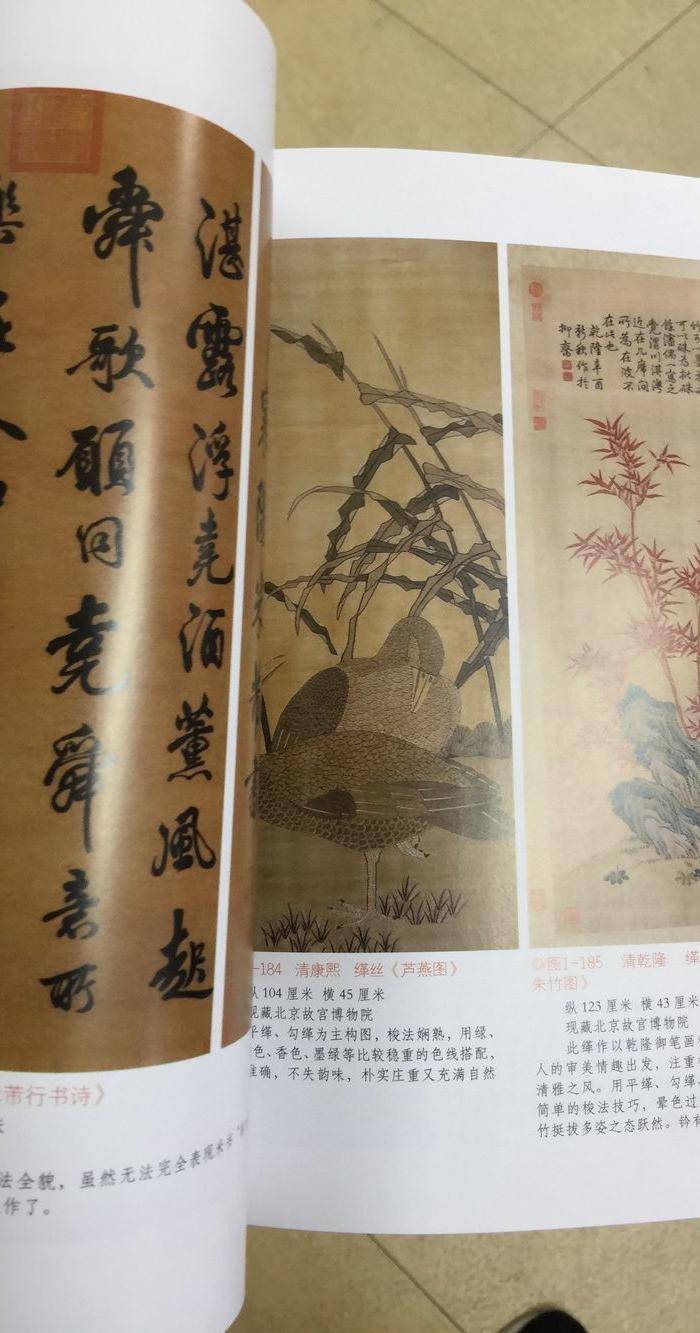 湛露浮堯酒薰風起
舜歌願同堯舜意所
乾隆辛酉
新秋作於
抑齋
-184 清康熙 缂丝《芦燕图》
纵 104 厘米 横 45 厘米
现藏北京故宫博物院
平缂、勾缂为主构图，梭法娴熟，用绿、
色、香色、墨绿等比较稳重的色线搭配，
准确，不失韵味，朴实庄重又充满自然
◎图1-185 清乾隆 缂
朱竹图》
纵 123 厘米 横 43 厘米
现藏北京故宫博物院
此缂作以乾隆御笔画
人的审美情趣出发，注重
清雅之风。用平缂、勾缂
简单的梭法技巧，晕色过
竹挺拔多姿之态跃然。钤有
芾行书诗》
法全貌，虽然无法完全表现米书
作了。